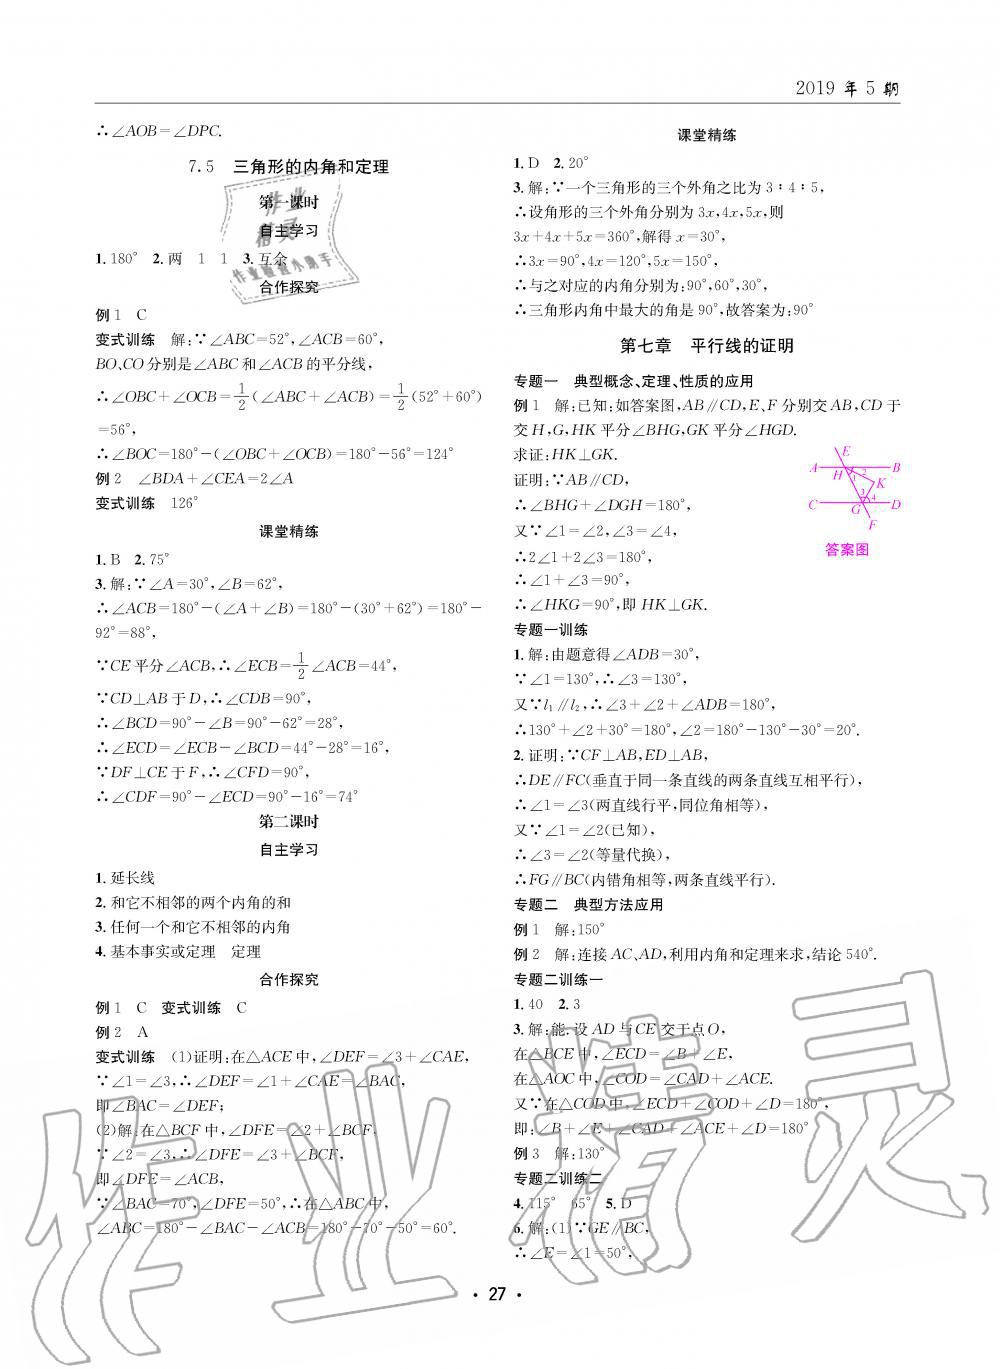 2019 年 5 期
∴∠AOB=∠DPC.
7.5 三角形的内角和定理
第一课时
自主学习
1.180° 2.两 1 1 3.互余
合作探究
例 1 C
变式训练 解:∵∠ABC=52°,∠ACB=60°,
BO、CO 分别是∠ABC 和∠ACB 的平分线,
∴∠OBC+∠OCB=1/2(∠ABC+∠ACB)=1/2(52°+60°)
=56°,
∴∠BOC=180°-(∠OBC+∠OCB)=180°-56°=124°
例 2 ∠BDA+∠CEA=2∠A
变式训练 126°
课堂精练
1.B 2.75°
3.解:∵∠A=30°,∠B=62°,
∴∠ACB=180°-(∠A+∠B)=180°-(30°+62°)=180°-
92°=88°,
∵CE 平分∠ACB,∴∠ECB=1/2∠ACB=44°,
∵CD⊥AB 于 D,∴∠CDB=90°,
∴∠BCD=90°-∠B=90°-62°=28°,
∴∠ECD=∠ECB-∠BCD=44°-28°=16°,
∵DF⊥CE 于 F,∴∠CFD=90°,
∴∠CDF=90°-∠ECD=90°-16°=74°
第二课时
自主学习
1.延长线
2.和它不相邻的两个内角的和
3.任何一个和它不相邻的内角
4.基本事实或定理 定理
合作探究
例 1 C 变式训练 C
例 2 A
变式训练 (1)证明:在△ACE 中,∠DEF=∠3+∠CAE,
∵∠1=∠3,∴∠DEF=∠1+∠CAE=∠BAC,
即∠BAC=∠DEF;
(2)解:在△BCF 中,∠DFE=∠2+∠BCF,
∵∠2=∠3,∴∠DFE=∠3+∠BCF,
即∠DFE=∠ACB,
∵∠BAC=70°,∠DFE=50°,∴在△ABC 中,
∠ABC=180°-∠BAC-∠ACB=180°-70°-50°=60°.
课堂精练
1.D 2.20°
3.解:∵一个三角形的三个外角之比为 3∶4∶5,
∴设角形的三个外角分别为 3x,4x,5x,则
3x+4x+5x=360°,解得 x=30°,
∴3x=90°,4x=120°,5x=150°,
∴与之对应的内角分别为:90°,60°,30°,
∴三角形内角中最大的角是 90°,故答案为:90°
第七章 平行线的证明
专题一 典型概念、定理、性质的应用
例 1 解:已知:如答案图,AB∥CD,E、F 分别交 AB,CD 于
交 H,G,HK 平分∠BHG,GK 平分∠HGD.
求证:HK⊥GK.
证明:∵AB∥CD,
∴∠BHG+∠DGH=180°,
又∵∠1=∠2,∠3=∠4,
∴2∠1+2∠3=180°,
∴∠1+∠3=90°,
∴∠HKG=90°,即 HK⊥GK.
E
A H 1 2 B
K
3 4
C G D
F
答案图
专题一训练
1.解:由题意得∠ADB=30°,
∵∠1=130°,∴∠3=130°,
又∵l₁∥l₂,∴∠3+∠2+∠ADB=180°,
∴130°+∠2+30°=180°,∠2=180°-130°-30°=20°.
2.证明:∵CF⊥AB,ED⊥AB,
∴DE∥FC(垂直于同一条直线的两条直线互相平行),
∴∠1=∠3(两直线行平,同位角相等),
又∵∠1=∠2(已知),
∴∠3=∠2(等量代换),
∴FG∥BC(内错角相等,两条直线平行).
专题二 典型方法应用
例 1 解:150°
例 2 解:连接 AC、AD,利用内角和定理来求,结论 540°.
专题二训练一
1.40 2.3
3.解:能.设 AD 与 CE 交于点 O,
在△BCE 中,∠ECD=∠B+∠E,
在△AOC 中,∠COD=∠CAD+∠ACE.
又∵在△COD 中,∠ECD+∠COD+∠D=180°,
即:∠B+∠E+∠CAD+∠ACE+∠D=180°
例 3 解:130°
专题二训练二
4.115° 65° 5.D
6.解:(1)∵GE∥BC,
∴∠E=∠1=50°,
• 27 •
作业
精灵
作业检查小助手
作业精灵